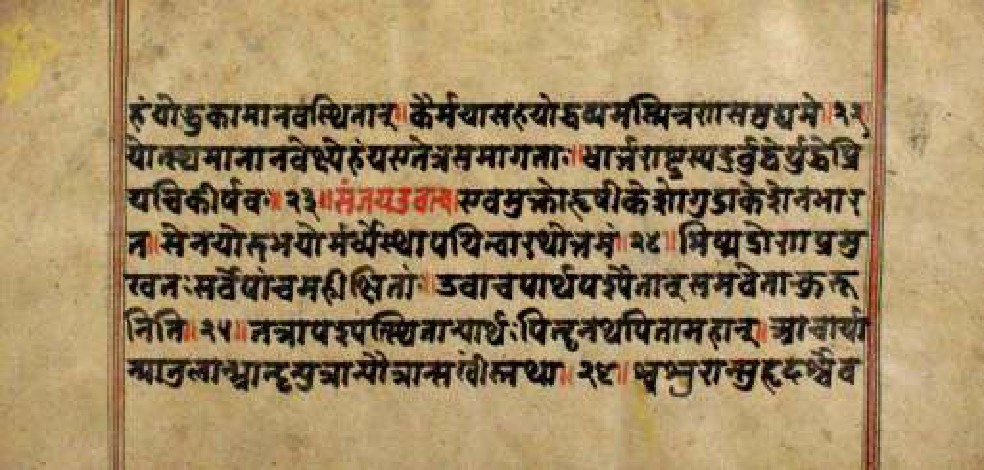 हं योद्धुकामानवस्थितान् ॥ कैर्मयासहयोद्धव्यमस्मिन्रणसमुद्यमे ॥ २२
योत्स्यमानानवेक्ष्येहंयएतेत्रसमागताः ॥ धार्त्तराष्ट्रस्यदुर्बुद्धेर्युद्धेप्रि
यचिकीर्षवः ॥ २३ ॥ संजयउवाच ॥ एवमुक्तोहृषीकेशोगुडाकेशेनभार
त ॥ सेनयोरुभयोर्मध्येस्थापयित्वारथोत्तमं ॥ २४ ॥ भिष्मद्रोणप्रमु
खतःसर्वेषांचमहीक्षितां ॥ उवाचपार्थपश्यैतान्समवेतान्कुरू
निति ॥ २५ ॥ तत्रापश्यंत्स्थितान्पार्थःपितॄनथपितामहान् ॥ आचार्या
न्मातुलान्भ्रातॄन्पुत्रान्पौत्रान्सखींस्तथा ॥ २६ ॥ श्वशुरान्सुहृदश्चैव